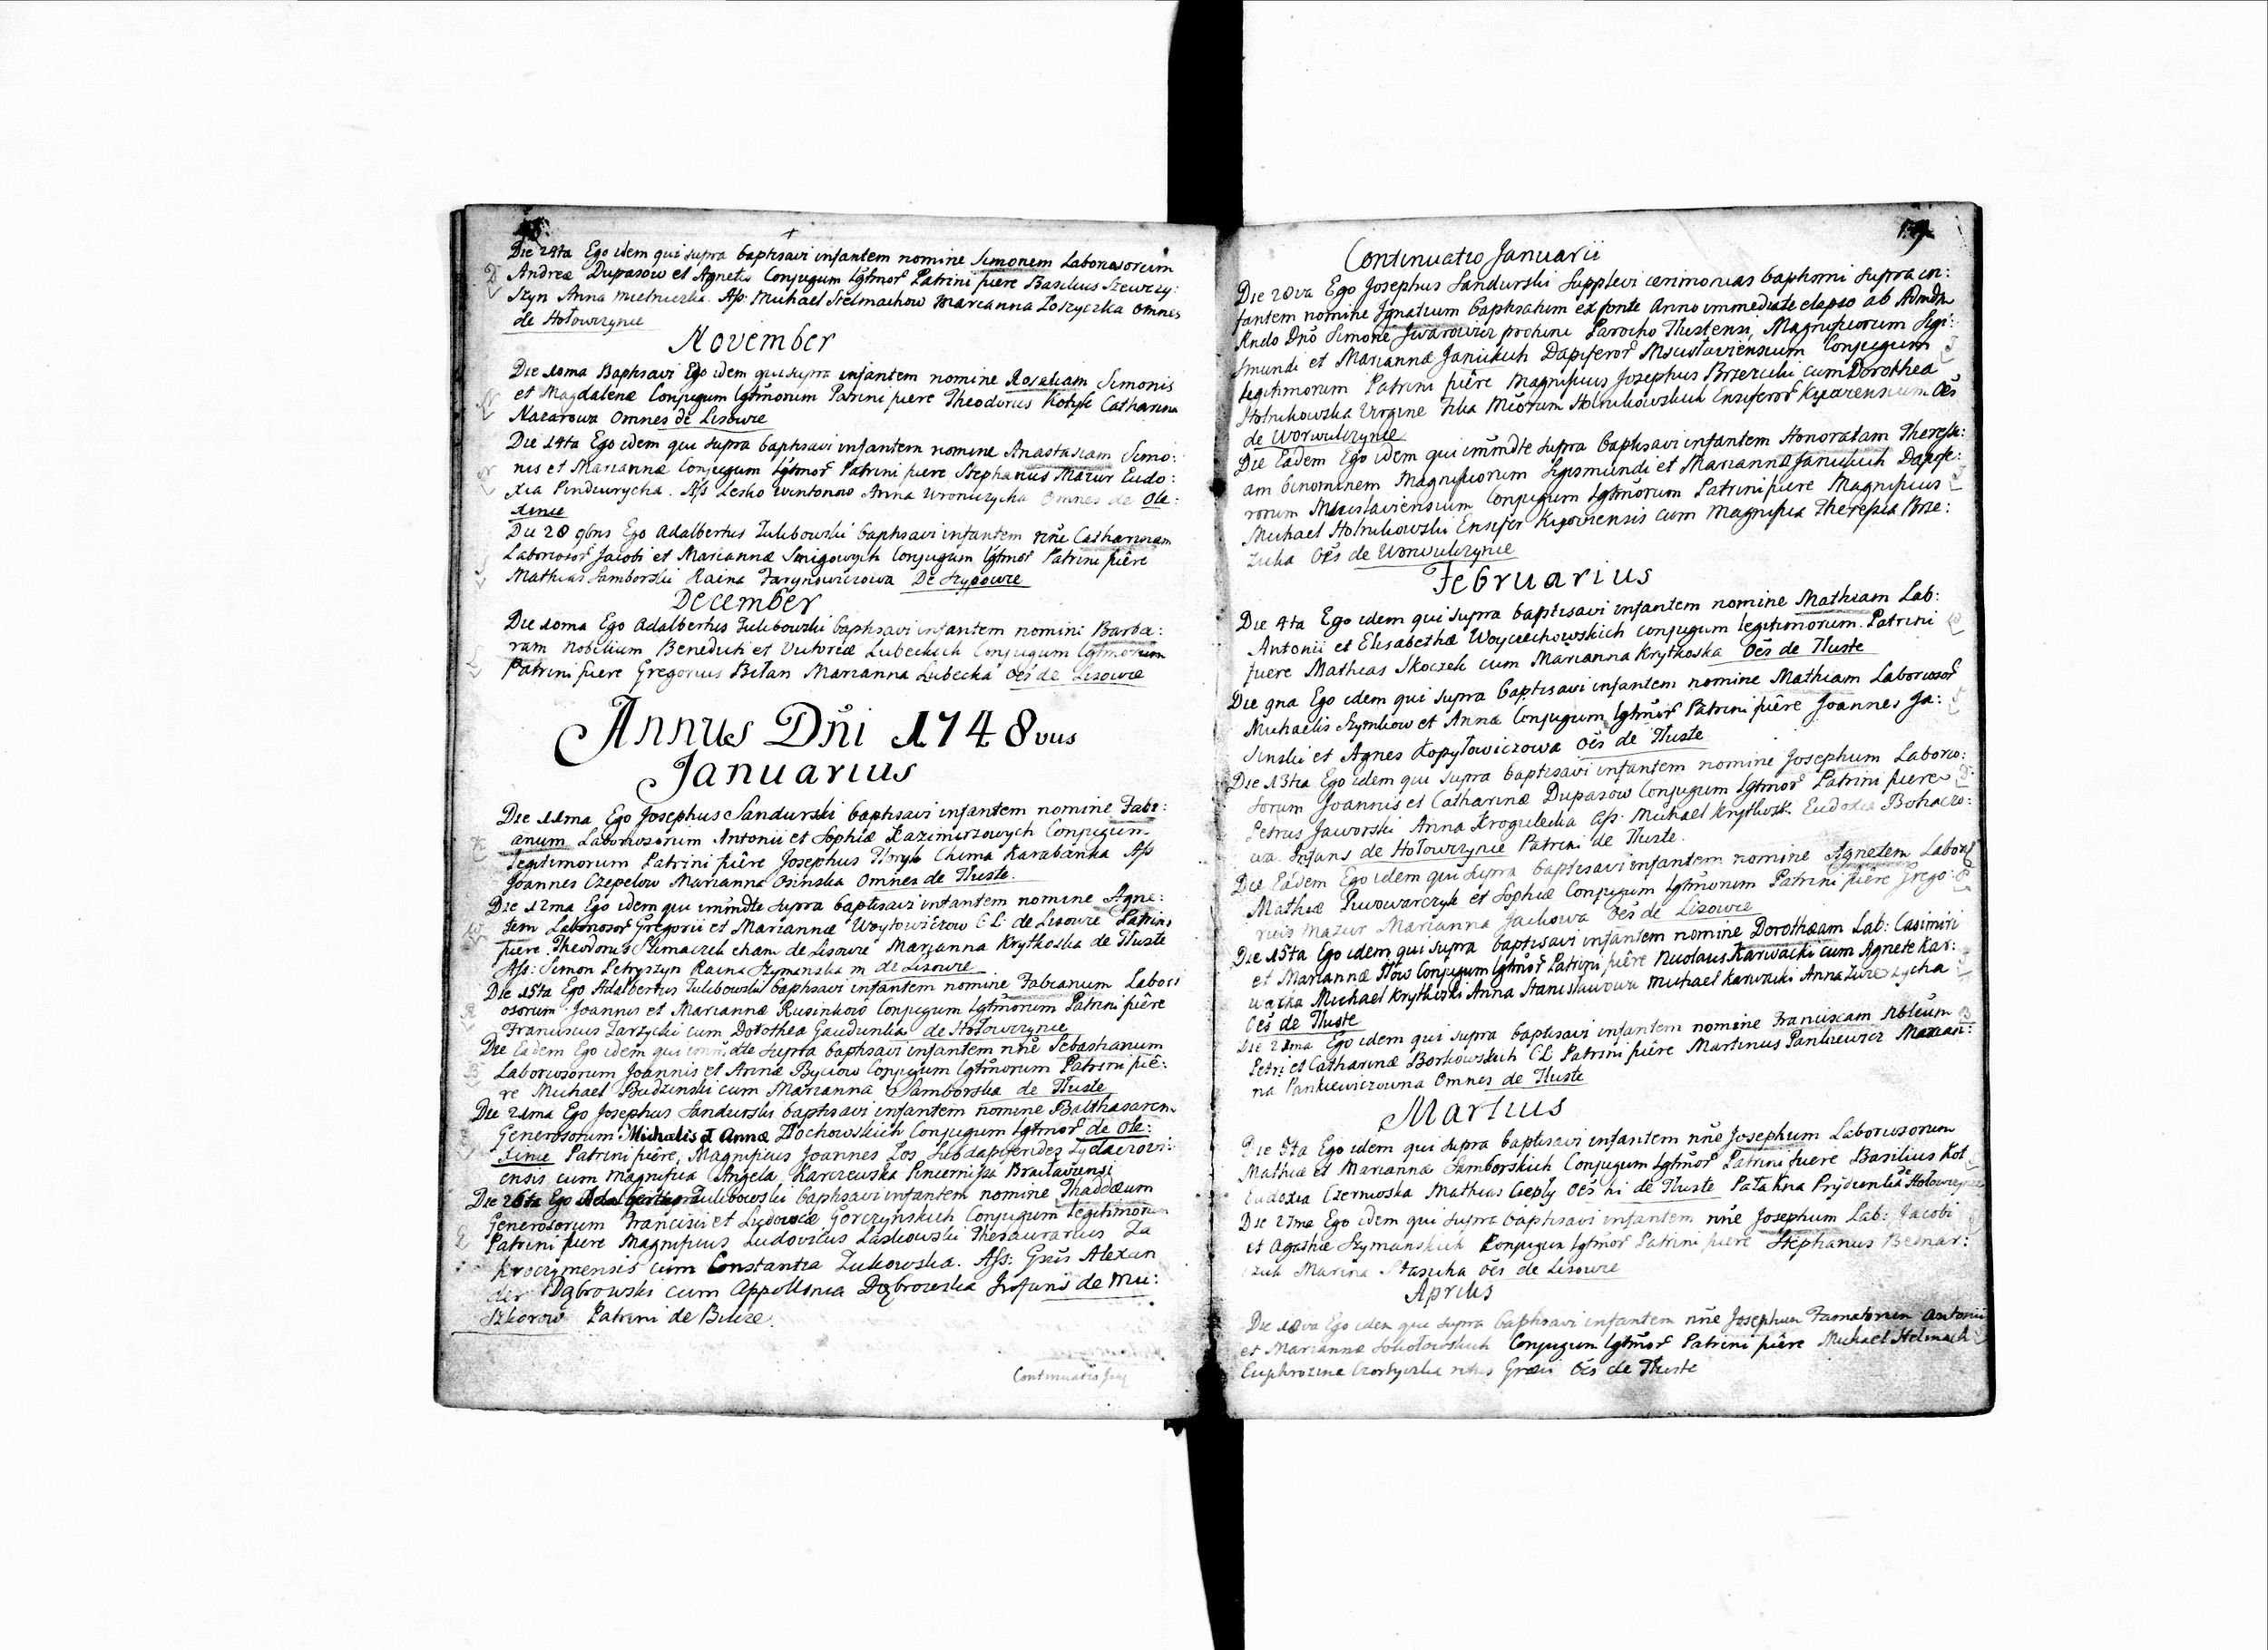 Die 24ta Ego idem qui supra baptisavi infantem nomine Simonem Laboriosorum
D Andreæ Dupasow et Agnetis Conjugum lgtmor Patrini fuere Basilius Szewczy:
szyn Anna Mielniczka. Ass: Michael Stelmachow Marianna Loszyczka Omnes
de Hołowczynce
November
Die 10ma Baptisavi Ego idem qui supra infantem nomine Rosaliam Simonis
et Magdalenæ Conjugum lgtmorum Patrini fuere Theodorus Kotyk Catharina
Nazarowa Omnes de Lisowce
Die 14ta Ego idem qui supra baptisavi infantem nomine Anastasiam Simo:
nis et Mariannæ Conjugum lgtmor Patrini fuere Stephanus Mazur Eudo:
xia Pindiurycha. Ass Lesko Wintonow Anna Wronczycha Omnes de Ole:
xince
Die 28 9bris Ego Adalbertus Lulibowski baptisavi infantem nne Catharinam
Laboriosor Jacobi et Mariannæ Snigowych Conjugum lgtmor Patrini fuêre
Mathias Samborski Raina Farynowiczowa De Szypowce
December
Die 10ma Ego Adalbertus Lulibowski baptisavi infantem nomini Barba:
ram Nobilium Benedicti et Victoriæ Lubeckich Conjugum lgtmorum
Patrini fuere Gregorius Bilan Marianna Lubecka Oes de Lisowce
Annus Dñi 1748vus
Januarius
Die 11ma Ego Josephus Sandurski baptisavi infantem nomine Fabi:
anum Laboriosorum Antonii et Sophiæ Kazimirzowych Conjugum
legitimorum Patrini fuêre Josephus Horyk Chima Karabanka Ass
Joannes Czepelow Marianna Osinska Omnes de Tłuste.
Die 12ma Ego idem qui immdte supra baptisavi infantem nomine Agne:
W tem Laboriosor Gregorii et Mariannæ Woytowiczow C L: de Lisowce Patrini
fuere Theodorus Szmaczek etiam de Lisowce Marianna Krytkoska de Tłuste
Ass: Simon Petryszyn Raina Szymanska m de Lisowce
Die 15ta Ego Adalbertus Lulibowski baptisavi infantem nomine Fabianum Labori
R osorum Joannis et Mariannæ Rusinkow Conjugum lgtmorum Patrini fuêre
Franciscus Zarzycki cum Dorothea Gaudunka de Hołowczynce
Die Eadem Ego idem qui immdte supra baptisavi infantem nne Sebastianum
B Laboriosorum Joannis et Annæ Byciow Conjugum lgtmorum Patrini fuê:
re Michael Budzinski cum Marianna Samborska de Tłuste
Die 21ma Ego Josephus Sandurski baptisavi infantem nomine Balthasarem
Generosorum Michalis et Annæ Złochowskich Conjugum lgtmor de Ole:
xince Patrini fuêre, Magnificus Joannes Los Subdapiferides Zydaczovi:
ensis cum Magnifica Angela Karczewska Pincernissa Braclaviensi
Die 26ta Ego Adalbertus Lulibowski baptisavi infantem nomine Thaddæum
Generosorum Francisci et Ludovicæ Gorczynskich Conjugum legitimorum
G Patrini fuere Magnificus Ludovicus Laskowski Thesaurarius Za
kroczymensis cum Constantia Zukowska. Ass: Gnüs Alexan
der Dąbrowski cum Appollonia Dąbrowska Infans de Mu:
szkorow Patrini de Bilcze.
Continuatio Janu
19.
Continuatio Januarii
Die 28va Ego Josephus Sandurski Supplevi cerimonias baptismi supra in:
fantem nomine Ignatium baptisatum ex fonte Anno immediate elapso ab Admdu
Rndo Dnõ Simone Iwarowicz protunc Parocho Tłustensi, Magnificorum Sigi:
smundi et Mariannæ Janickich Dapiferor Mscislaviensium Conjugum J
legitimorum Patrini fuêre Magnificus Josephus Brzezicki cum Dorothea
Hołnikowska Virgine Filia Micorum Hołnikowskich Ensiferor Kyovensium Oes
de Worwulczynce
Die Eadem Ego idem qui immdte supra baptisavi infantem Honoratam Theresi:
am binominem Magnificorum Sigismundi et Mariannæ Janickich Dapife:
rorum Mscislaviensium Conjugum lgtmorum Patrini fuere Magnificus
Michael Hołnikowski Ensifer Kijoviensis cum Magnifica Theresia Brze:
zicka Oes de Worwulczynce
Februarius
Die 4ta Ego idem qui supra baptisavi infantem nomine Mathiam Lab:
Antonii et Elisabethæ Woyciechowskich conjugum legitimorum. Patrini W
fuere Mathias Skoczek cum Marianna Krytkoska Oes de Tłuste
Die 9na Ego idem qui supra baptisavi infantem nomine Mathiam Laboriosor
Michaelis Szymkow et Annæ Conjugum lgtmor Patrini fuêre Joannes Ja:
sinski et Agnes Kopyłowiczowa Oes de Tłuste
Die 13tia Ego idem qui supra baptisavi infantem nomine Josephum Laborio:
sorum Joannis et Catharinæ Dupasow Conjugum lgtmor Patrini fuere D
Petrus Jaworski Anna Krogulecka Ass: Michael Krytkosk: Eudoxia Bohaczo:
wa. Infans de Hołowczynce Patrini de Tłuste.
Die Eadem Ego idem qui supra baptisavi infantem nomine Agnetem Labors
Mathiæ Piwowarczyk et Sophiæ Conjugum lgtmorum Patrini fuêre Grego: P
rius Mazur Marianna Jackowa Oes de Lisowce
Die 15ta Ego idem qui supra baptisavi infantem nomine Dorotheam Lab: Casimiri
et Mariannæ Iłow Conjugum lgtmor Patrini fuêre Nicolaus Karwacki cum Agnete Kar:
wacka Michael Krytkoski Anna Stanislawowa Michael Karwacki Anna
Oes de Tłuste
Die 21ma Ego idem qui supra baptisavi infantem nomine Franciscam Nblium B
Petri et Catharinæ Borkowskich C L Patrini fuêre Martinus Pankiewicz Marian:
na Pankiewiczowna Omnes de Tłuste
Martius
Die 5ta Ego idem qui supra baptisavi infantem nne Josephum Laboriosorum
Mathiæ et Mariannæ Samborskich Conjugum lgtmor Patrini fuere Basilius Kot
Eudoxia Czernioska Mathias Ciepły Oes hi de Tłuste Pałakna Prydunka de Hołowczynce
Die 27ma Ego idem qui supra baptisavi infantem nne Josephum Lab: Jacobi
et Agathæ Szymanskich Conjugum lgtmor Patrini fuere Stephanus Bednar:
czuk Marina Stasicha Oes de Lisowce
Aprilis
Die 18va Ego idem qui supra baptisavi infantem nne Josephum Famatorum Antonii
et Mariannæ Sokołowskich Conjugum lgtmor Patrini fuêre Michael Stelmach
Euphrozina Czortyczka ritus Græci Oes de Tłuste